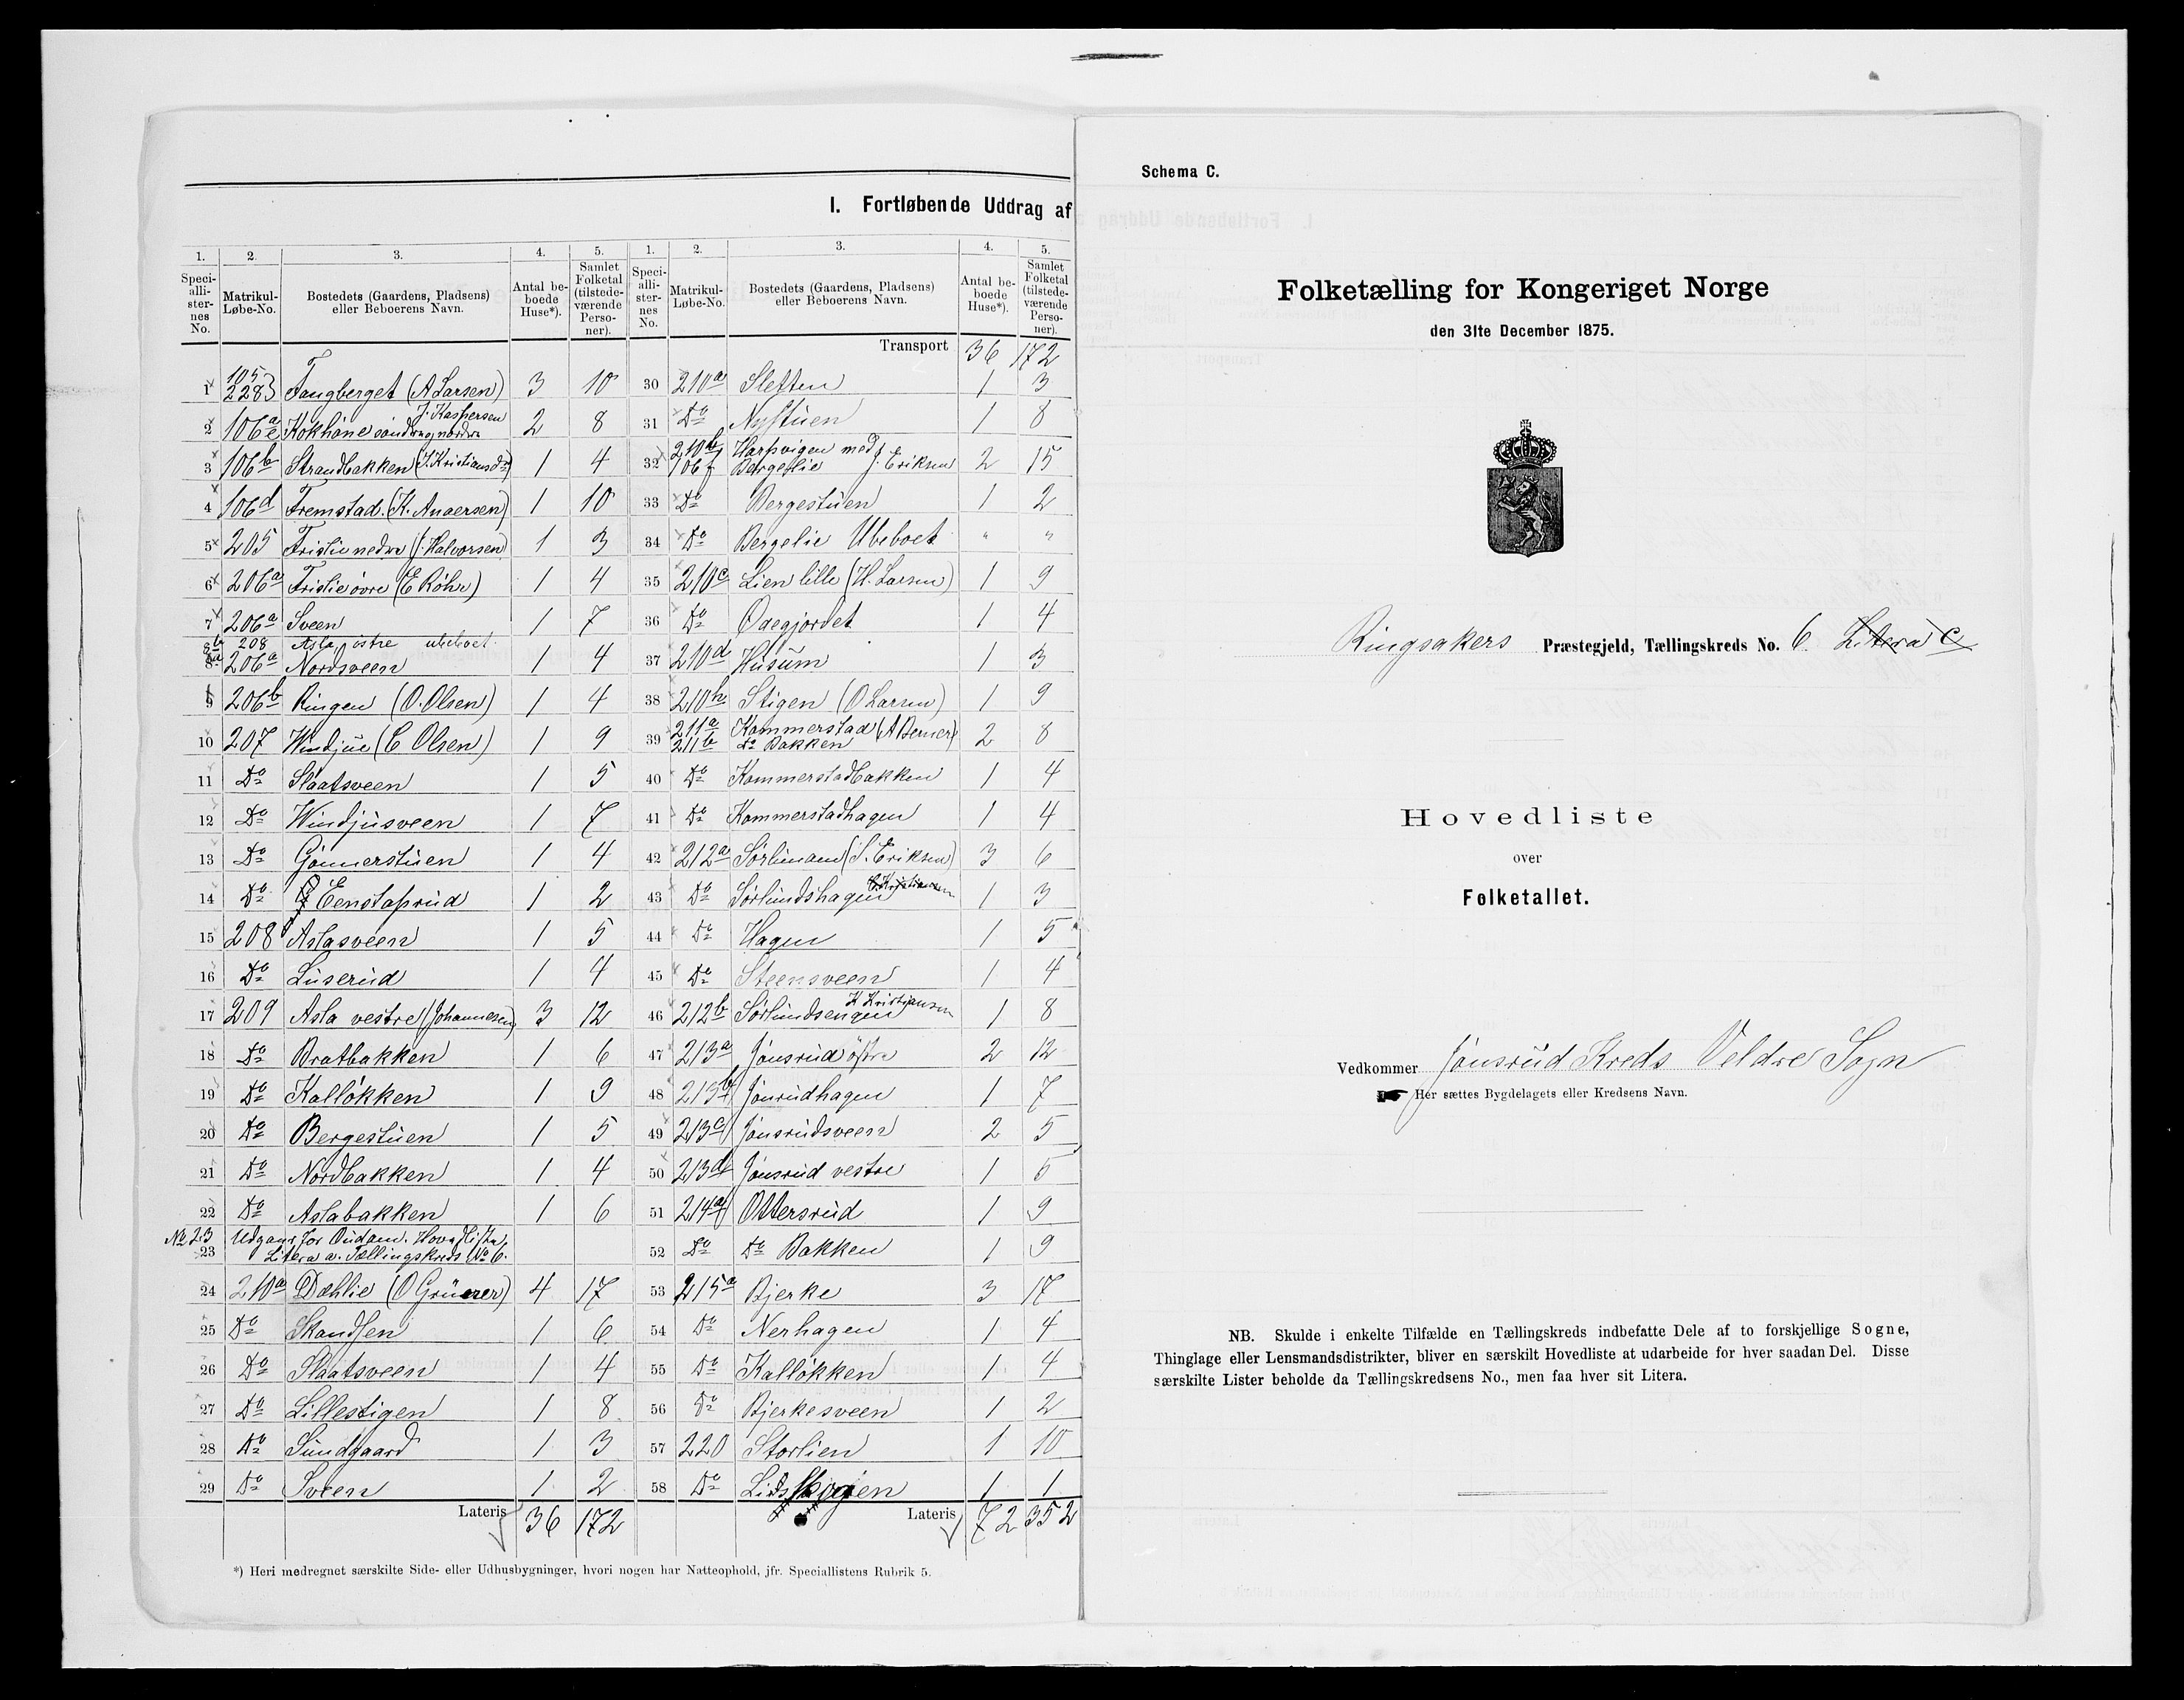 I. Fortløbende Uddrag af
1. 2. 3. 4. 5. 1. 2. 3. 4. 5.
Speciallisternes No. Matrikul-Løbe-No. Bostedets (Gaardens, Pladsens) eller Beboerens Navn. Antal beboede Huse*). Samlet Folketal (tilstedeværende Personer). Speciallisternes No. Matrikul-Løbe-No. Bostedets (Gaardens, Pladsens) eller Beboerens Navn. Antal beboede Huse*). Samlet Folketal (tilstedeværende Personer).
Transport 36 172
1 105 228 Fangberget (A Larsen) 3 10
2 106 a e Kokhöne söndre og nordre J. Kaspersen 2 8
3 106b Strandbakken (J. Kristiansd) 1 4
4 106d Fremstad. (K. Andersen) 1 10
5 205 Fristie nedre (J. Halvorsen) 1 3
6 206a Fristie övre (E Röhr) 1 4
7 206a Sveen 1 7
8b 208 Asla östre ubeboet
8a 206a Nordsveen 1 4
9 206b Ringen (O. Olsen) 1 4
10 207 Windjue (C Olsen) 1 9
11 Do Slaatsveen 1 5
12 Do Windjusveen 1 7
13 Do Gönnerstuen 1 4
14 Do Eenstaprud 1 2
15 208 Aslasveen 1 5
16 Do Luserud 1 4
17 209 Asla vestre (Johannesen) 3 12
18 Do Bratbakken 1 6
19 Do Kallökken 1 9
20 Do Bergestuen 1 5
21 Do Nordbakken 1 4
22 Do Aslabakken 1 6
No 23 Udgaar, for Hovedliste
23 Litera a. Tællingskreds No 6.
24 210a Dæhlie (O Grüner) 4 17
25 Do Skandsen 1 6
26 Do Slaatsveen 1 4
27 Do Lillestigen 1 8
28 Do Sundgaard 1 3
29 Do Sveen 1 2
Lateris 36 172
30 210a Sletten 1 3
31 Do Nystuen 1 8
32 210b 106f Harpvigen med Bergeslie J. Eriksen 2 15
33 Do Bergestuen 1 2
34 Do Bergelie Ubeboet " "
35 210c Lien lille (H. Larsen) 1 9
36 Do Ödegjordet 1 4
37 210d Husum 1 3
38 210h Stigen (O Larsen) 1 9
39 211a 211b Kammerstad (A Berner) Do Bakken 2 8
40 Do Kammerstadbakken 1 4
41 Do Kammerstadhagen 1 4
42 212a Sörlundm (S. Eriksen) 3 6
43 Do Sörlundshagen 1 3
44 Do Hagen 1 5
45 Do Steensveen 1 4
46 212b Sörlundsengen K Kristiansen 1 8
47 213a Jönsrud östre 2 12
48 213b Jönsrudhagen 1 7
49 213c Jönsrudsveen 2 5
50 213d Jönsrud vestre 1 5
51 214a Ottersrud 1 9
52 Do Do Bakken 1 9
53 215a Bjerke 3 17
54 Do Nerhagen 1 4
55 Do Kallökken 1 4
56 Do Bjerkesveen 1 2
57 220 Storlien 1 10
58 Do Lidskogen 1 1
Lateris 72 352
*) Heri medregnet særskilte Side- eller Udhusbygninger, hvori nogen har Natteophold, jfr. Speciallistens Rubrik 5.
Schema C.
Folketælling for Kongeriget Norge
den 31te December 1875.
Ringsakers Præstegjeld, Tællingskreds No. 6. Litera C
Hovedliste
over
Folketallet.
Vedkommer Jönsrud Kreds Veldre Sogn
Her sættes Bygdelagets eller Kredsens Navn.
NB. Skulde i enkelte Tilfælde en Tællingskreds indbefatte Dele af to forskjellige Sogne,
Thinglage eller Lensmandsdistrikter, bliver en særskilt Hovedliste at udarbeide for hver saadan Del. Disse
særskilte Lister beholde da Tællingskredsens No., men faa hver sit Litera.